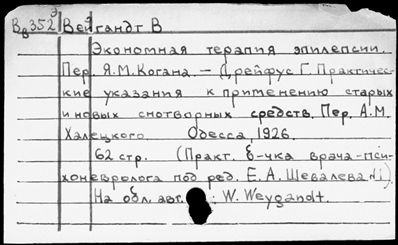 Вв352э Вейгандт В
Экономная терапия эпилепсии.
Пер. Я.М.Когана. — Дрейфус Г. Практичес-
кие указания к применению старых
и новых снотворных средств. Пер. А.М.
Халецкого. Одесса, 1926.
62 стр. (Практ. б-чка врача-пси-
хоневролога под ред. Е.А. Шевалева
На обл. авт.: W. Weygandt.